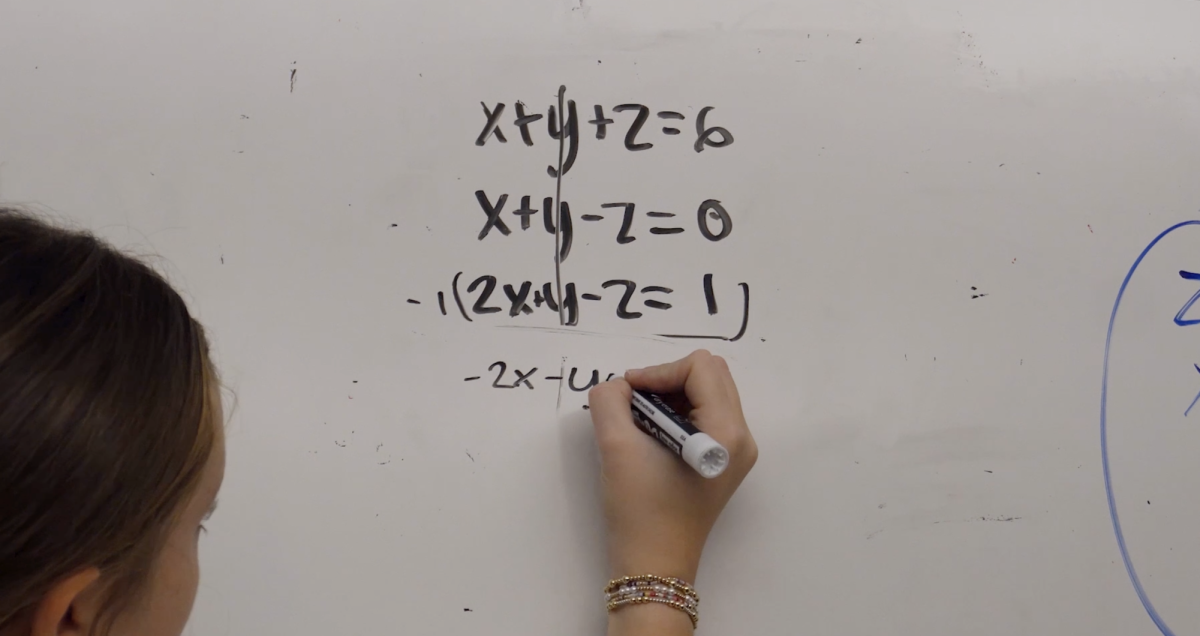 x+y+z=6
x+y-z=0
-1(2x+y-z=1)
-2x-y
z
x